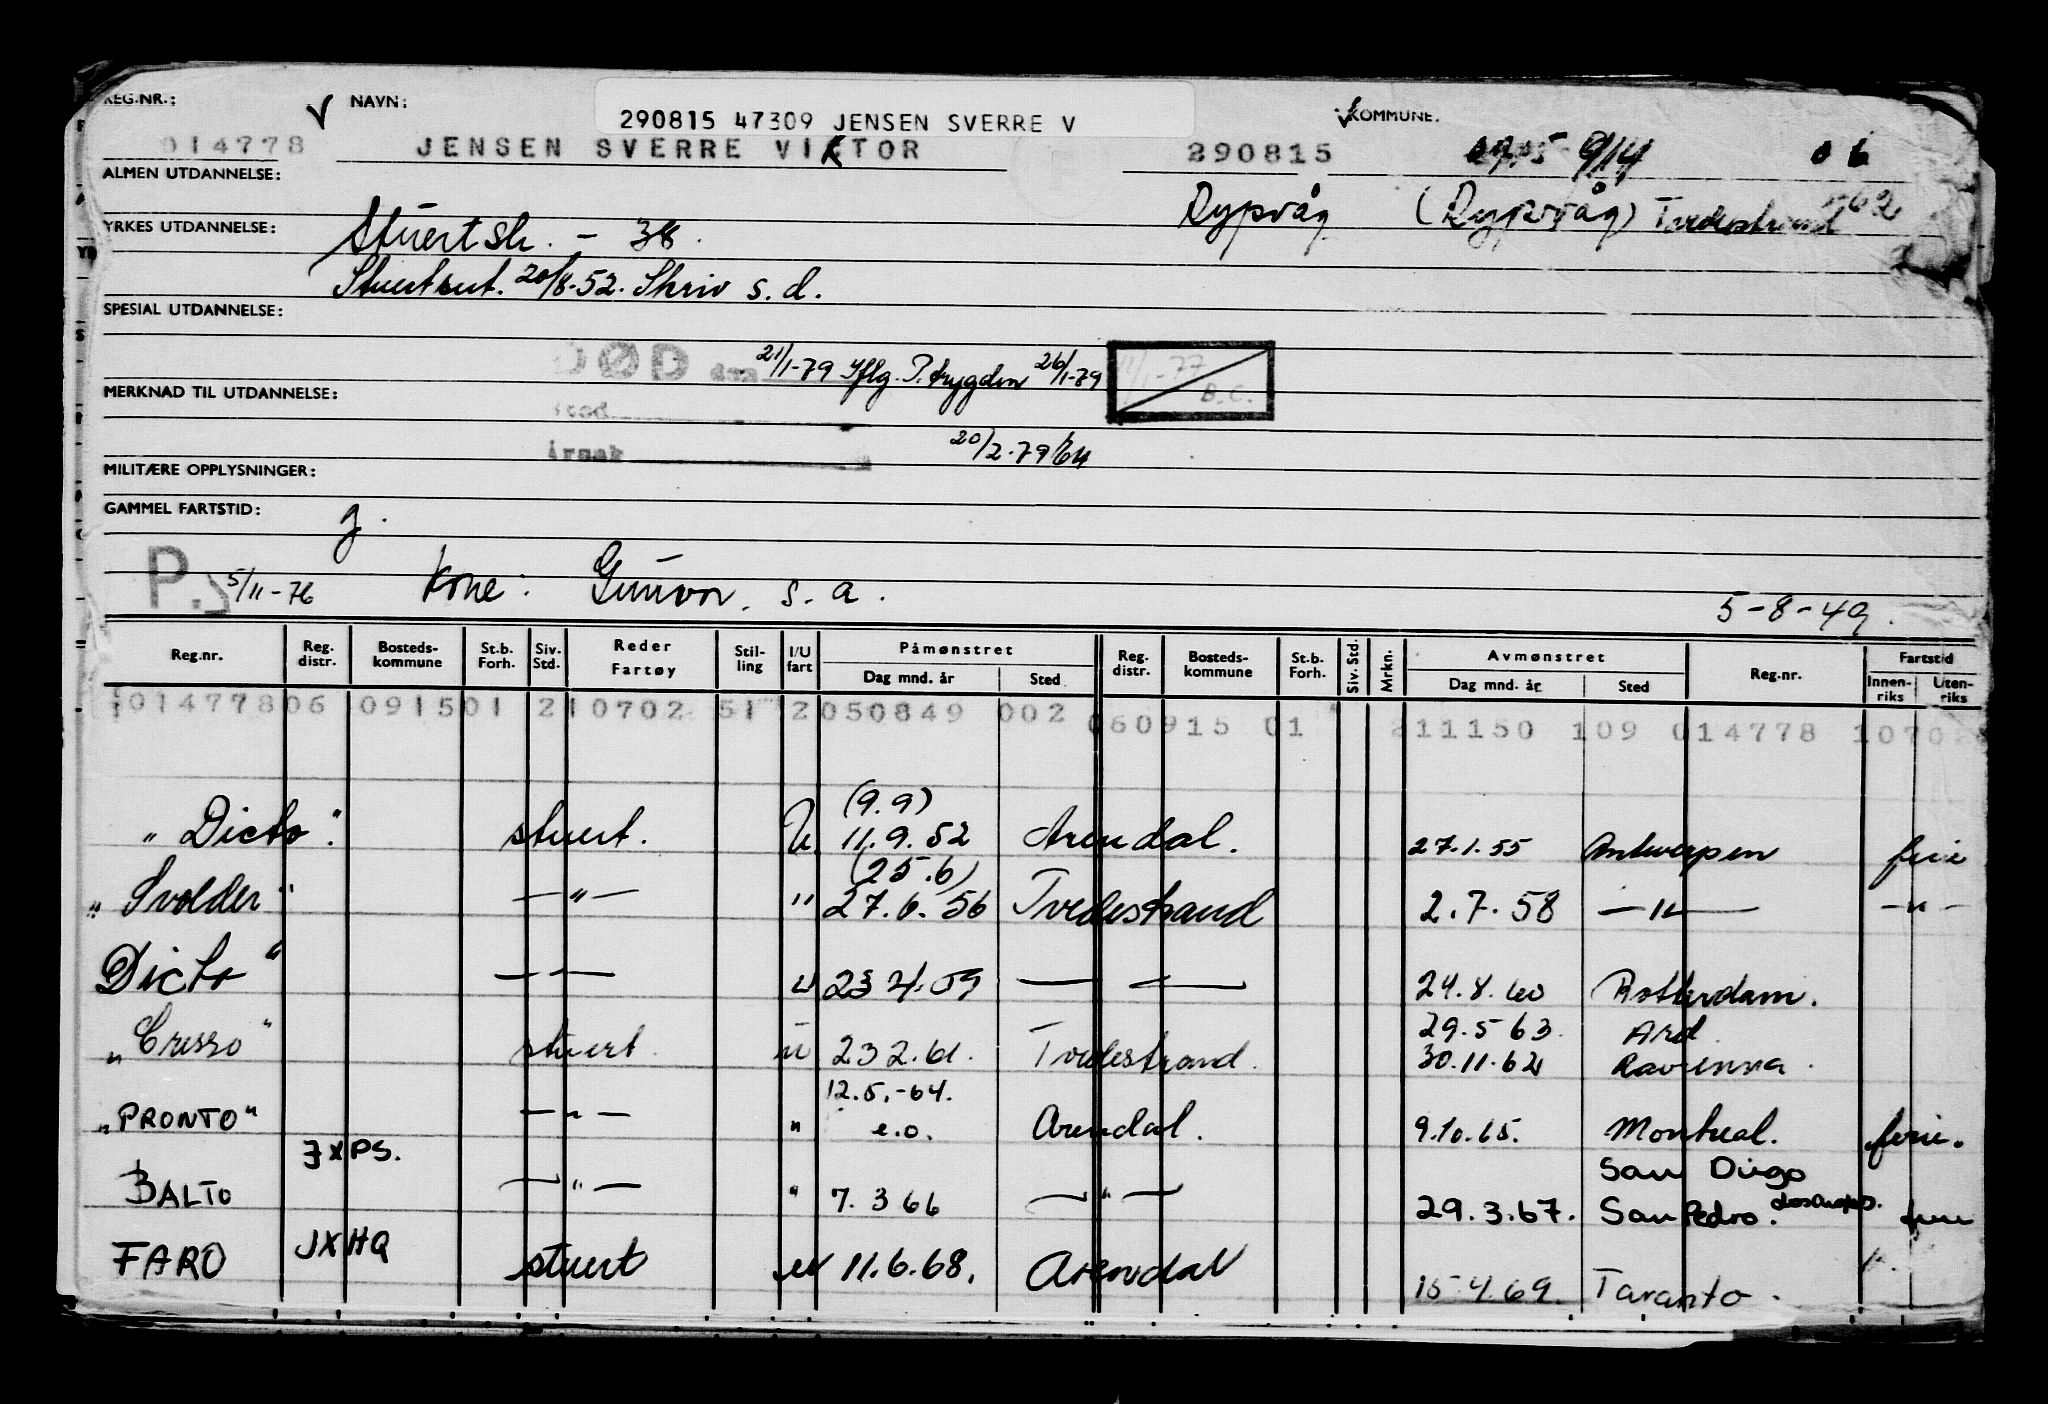 REG.NR.: NAVN: 290815 47309 JENSEN SVERRE V KOMMUNE.
014778 JENSEN SVERRE VIKTOR 290815 914 06
ALMEN UTDANNELSE: Dypvåg (Dypvåg) Tvedestrand
YRKES UTDANNELSE: Stuertsk. - 38.
Stuertsert. 20/8-52. Skriv s.d.
SPESIAL UTDANNELSE:
DØD den 21/1-79 Iflg. P.trygden 26/1-79
MERKNAD TIL UTDANNELSE:
sted
Årsak 20/2-79
MILITÆRE OPPLYSNINGER:
GAMMEL FARTSTID: J.
P. 5/11-76 kone: Gunvor. s.a. 5-8-49.
Reg.nr. Reg. distr. Bosteds-kommune St.b. Forh. Siv. Std. Reder Fartøy Stil-ling I/U fart Påmønstret Dag mnd. år Sted Reg. distr. Bosteds-kommune St.b. Forh. Siv. Std. Mrkn. Avmønstret Dag mnd. år Sted Reg.nr. Fartstid Innen-riks Uten-riks
01477806 091501 210702 51 2050849 002 060915 01 211150 109 014778 10702
(9.9)
"Dicto". stuert. U. 11.9.52 Arendal. 27.1.55 Antwerpen ferie
(25.6)
"Svolder" —"— " 27.6.56 Tvedestrand 2.7.58 —"— —"—
Dicto" — — u 23 4.59 — — 24.8.60 Rotterdam.
29.5 63. Ard.
"Cresso" stuert. u 23 2.61. Tvedestrand. 30.11.62 Ravenna.
12.5.-64.
"PRONTO" —"— " e.o. Arendal. 9.10.65. Montreal. ferie.
JXPS. San Diego
BALTO —"— " 7. 3 66 —"— 29.3.67. San Pedro. Los Angeles. ferie
FARO JXHQ stuert u 11.6.68. Arendal 15 4.69. Taranto. "